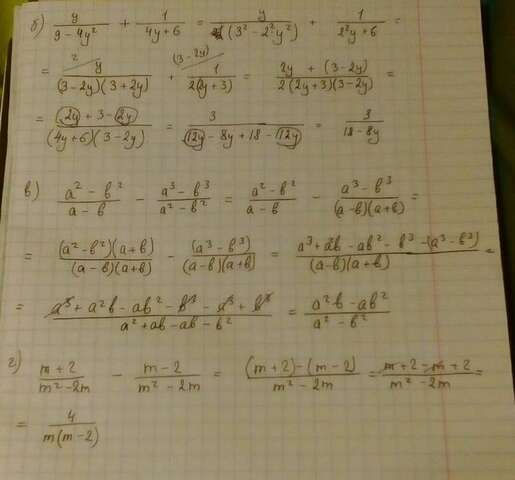 б) y/(9 - 4y²) + 1/(4y+6) = y/(3² - 2²y²) + 1/(2²y+6) =
= y/((3-2y)(3+2y)) ²⟋ + 1/(2(2y+3)) ⁽³⁻²ʸ⁾⟋ = (2y + (3-2y))/(2(2y+3)(3-2y)) =
= (2y + 3 - 2y)/((4y+6)(3-2y)) = 3/(12y - 8y + 18 - 12y) = 3/(18-8y)
в) (a² - в²)/(a - в) - (a³ - в³)/(a² - в²) = (a² - в²)/(a - в) - (a³ - в³)/((a-в)(a+в)) =
= ((a² - в²)(a+в))/((a-в)(a+в)) - (a³ - в³)/((a-в)(a+в)) = (a³ + a²в - aв² - в³ - (a³ - в³))/((a-в)(a+в)) =
= (a³ + a²в - aв² - в³ - a³ + в³)/(a² + aв - aв - в²) = (a²в - aв²)/(a² - в²)
г) (m+2)/(m² - 2m) - (m-2)/(m² - 2m) = ((m+2) - (m-2))/(m² - 2m) = (m+2-m+2)/(m² - 2m) =
= 4/(m(m-2))